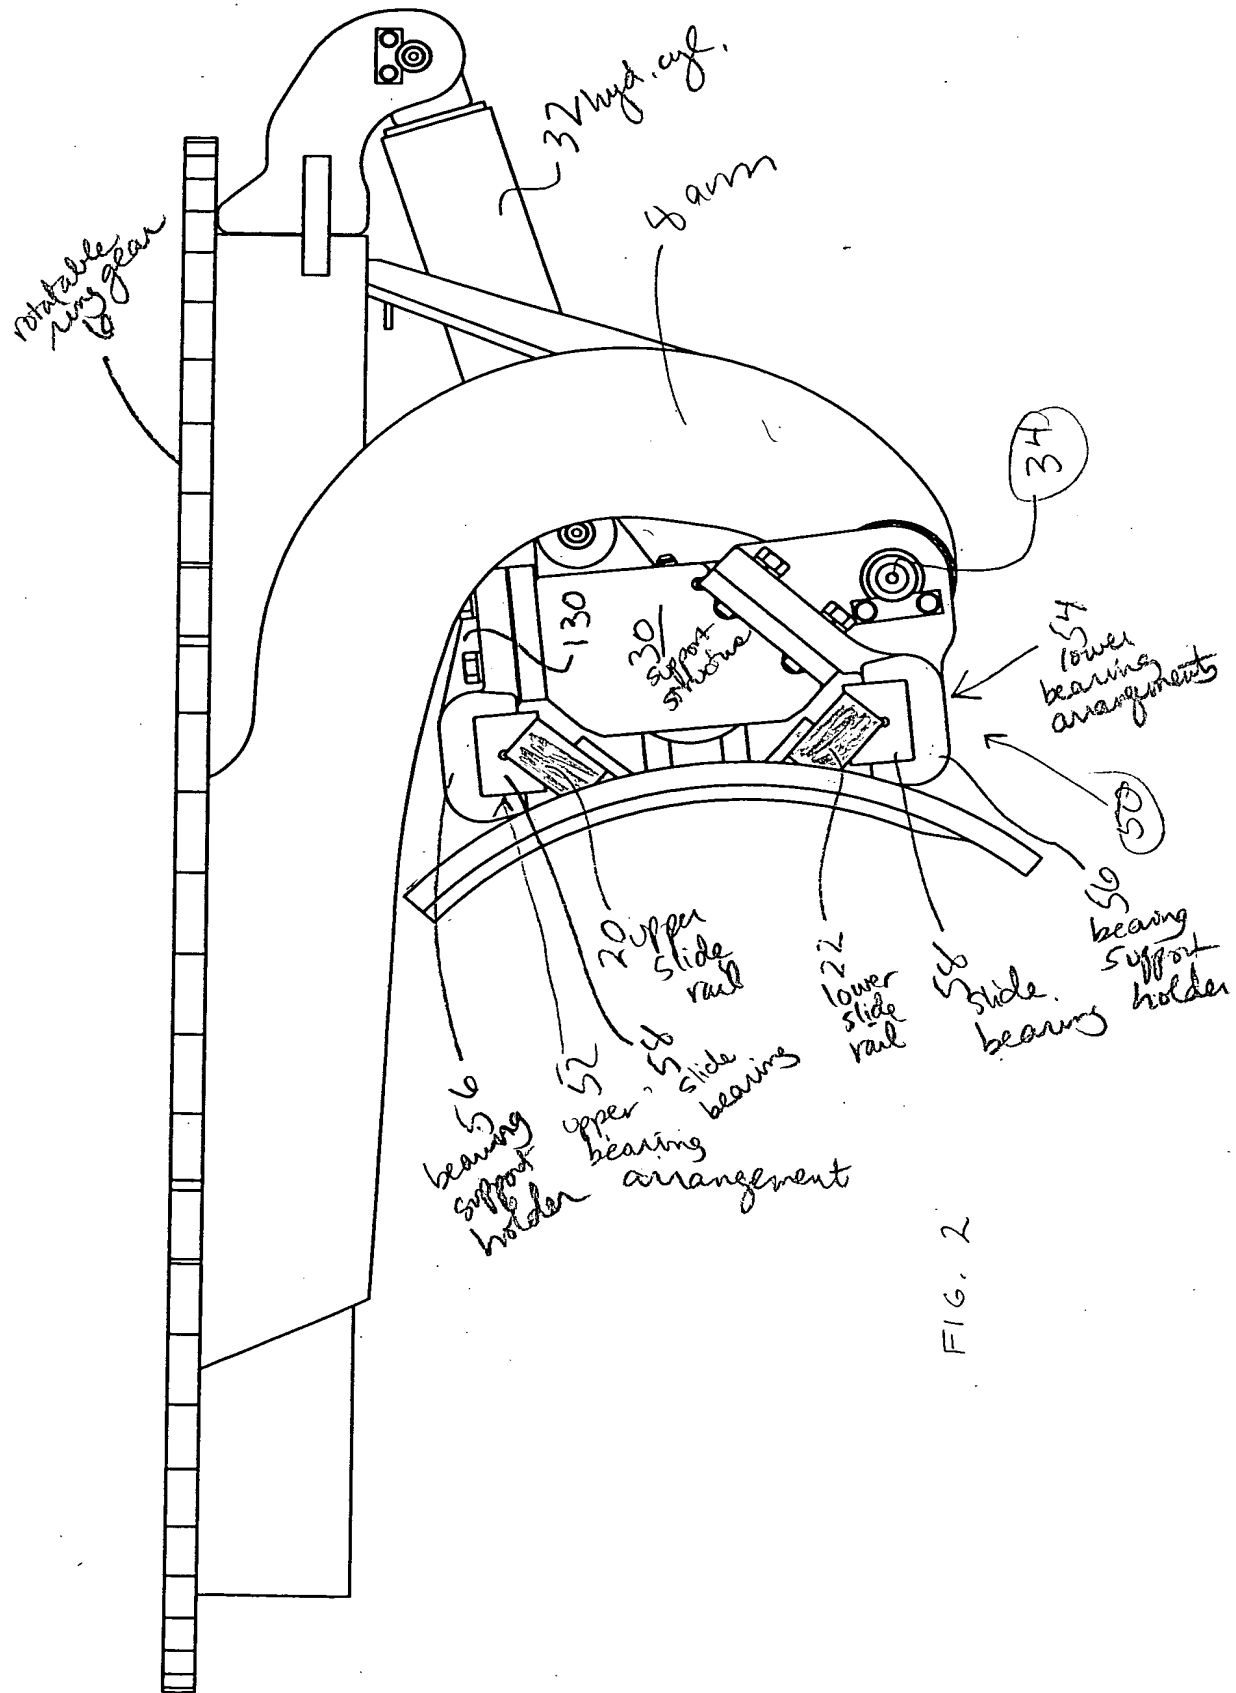 32 hyd. cyl.
8 arm
rotatable
ring gear
6
34
130
30
support
54
lower
bearing
arrangements
50
56
bearing
support
holder
58
slide
bearing
22
lower
slide
rail
20 upper
slide
rail
58
slide
bearing
52
upper
bearing
arrangement
56
bearing
support
holder
FIG. 2